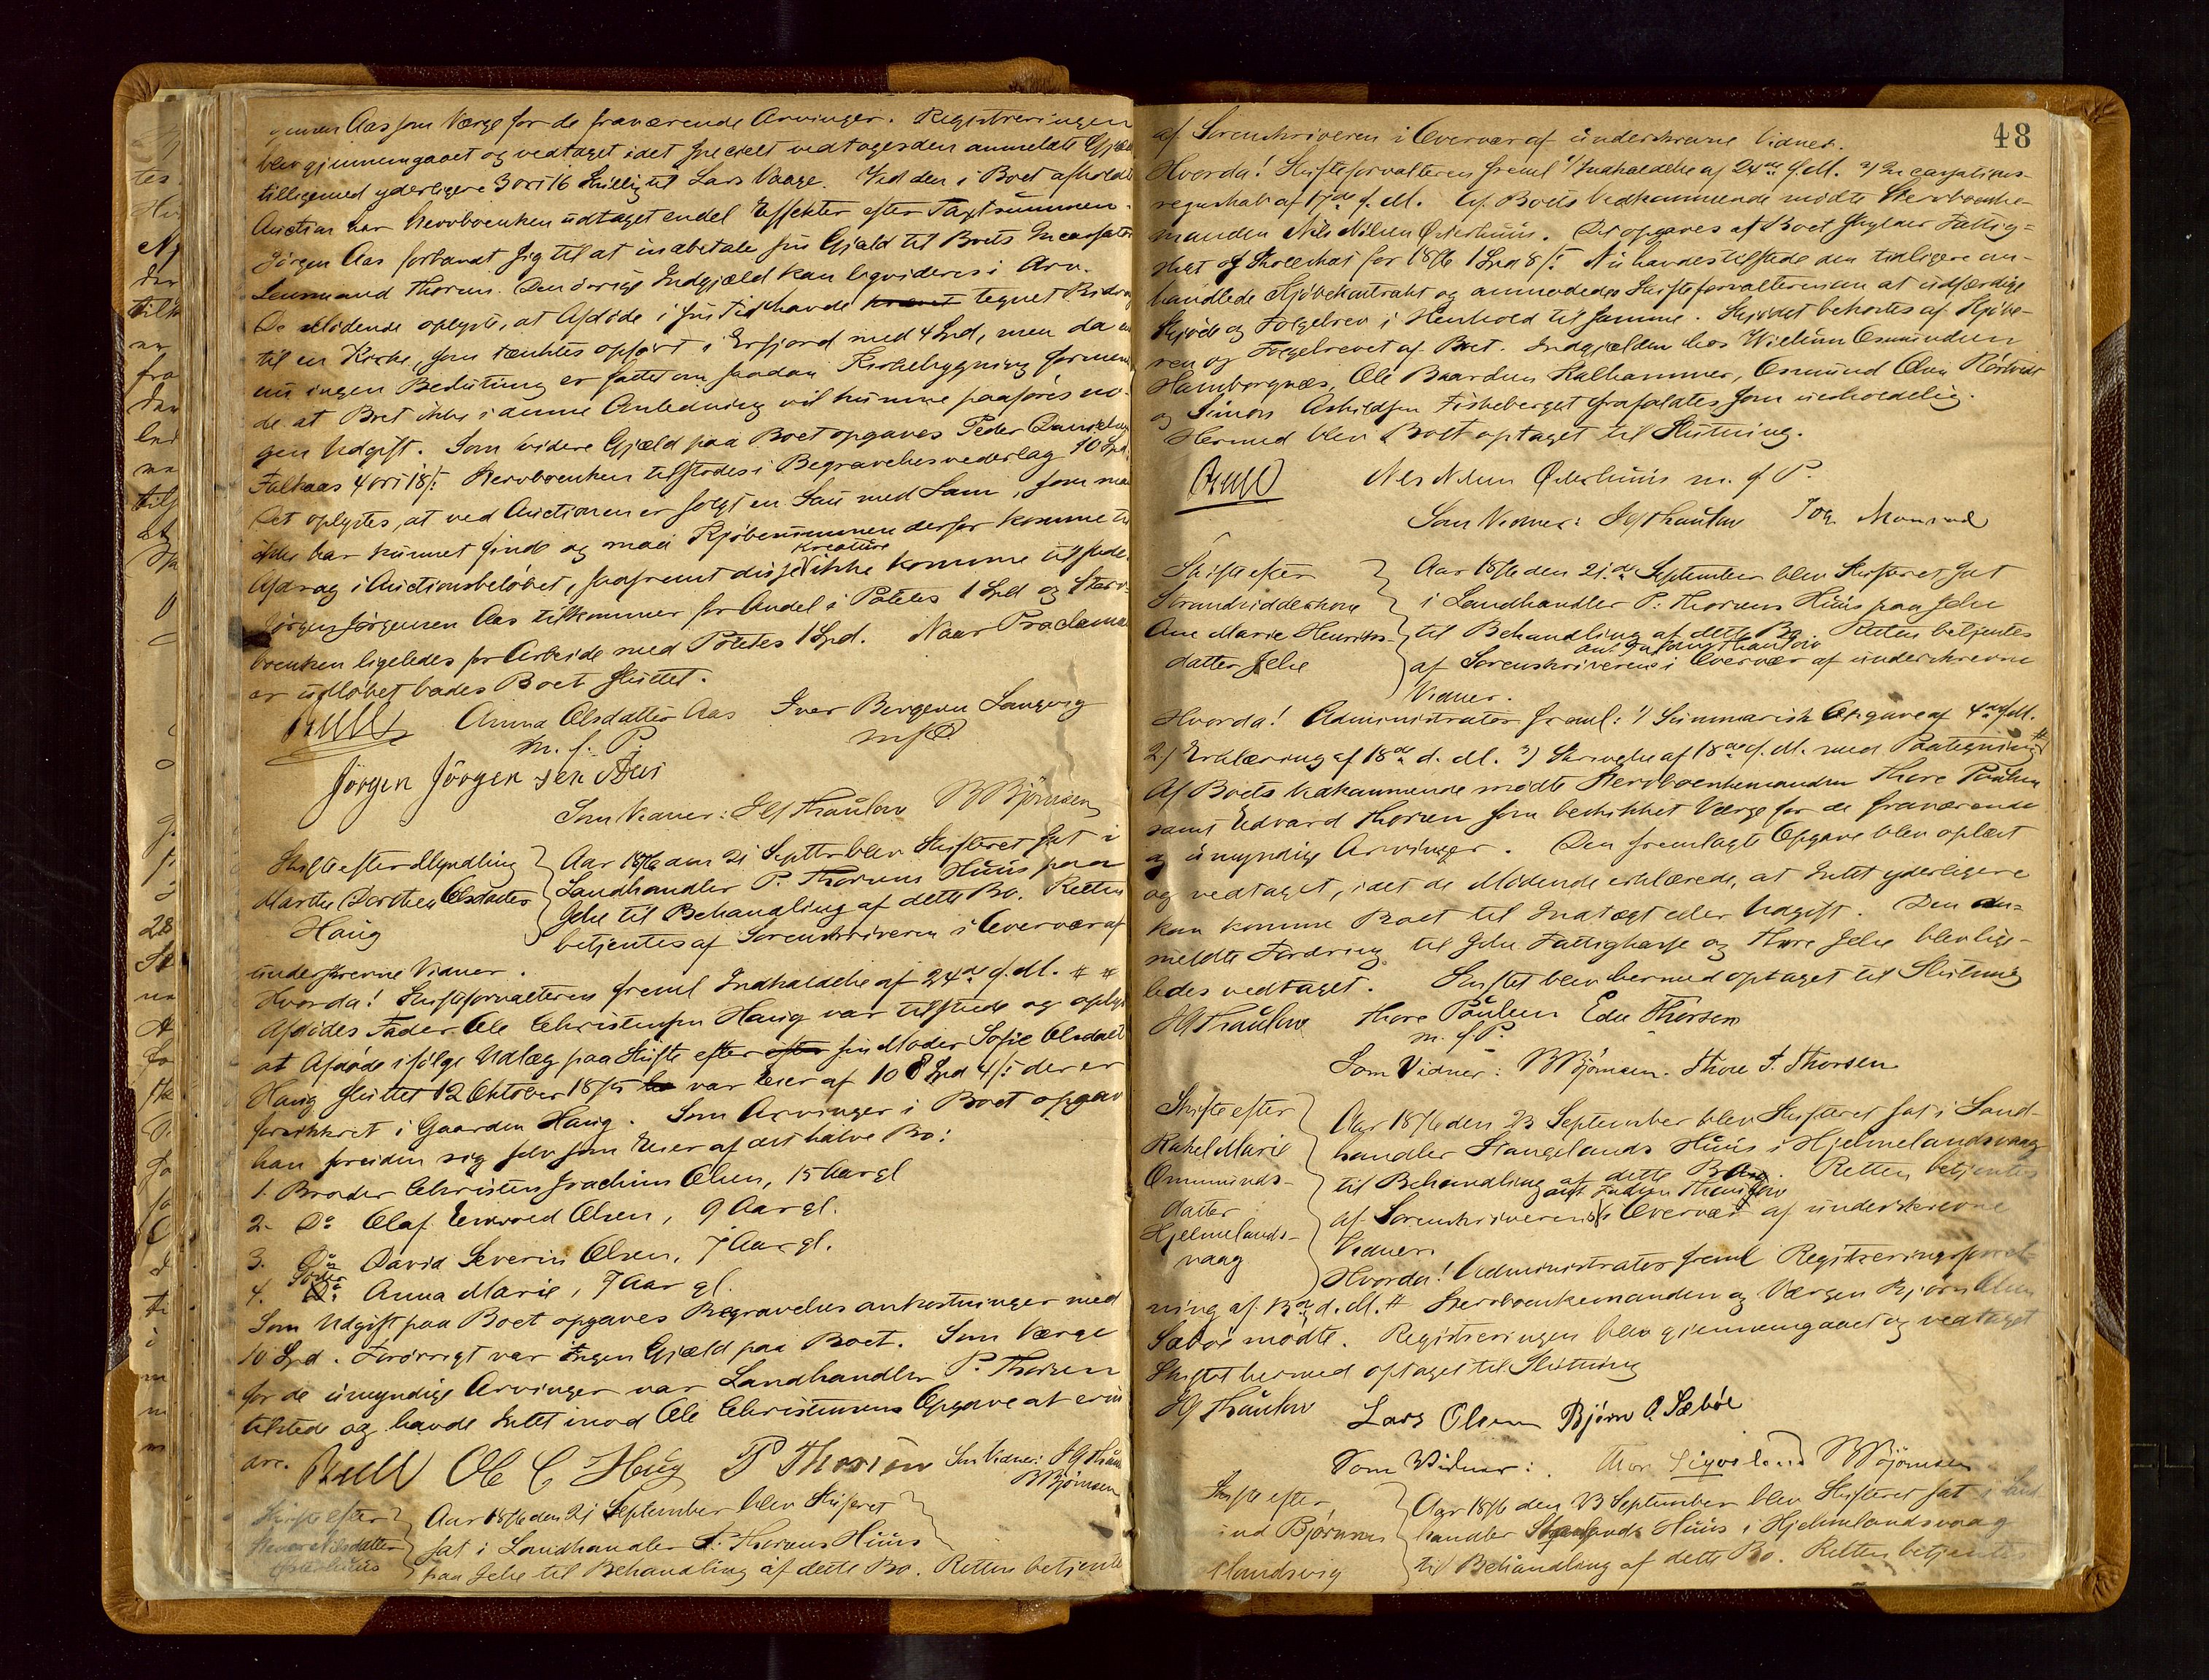 gensen Aas som Værge for de fraværende Arvinger. Registreringen
blev gjennemgaaet og vedtaget idet specielt vedtages den anmeldte Gjæld
tilligemed yderligere 3 ort 16 Skilling til Lars Vaage. Ved den i Boet afholdte
Auction har Stervboenken udtaget endel Effekter efter Taxtsummen.
Jørgen Aas forbandt sig til at indbetale sin Gjæld til Boets Incassator
Lensmand Thorsen. Den øvrige Indgjæld kan liqvideres i Arv.
De Mødende oplyste, at Afdøde i sin Tid havde tegnet Bidrag
til en Kirke, som tænktes opført i Erfjord med 4 Spd, men da en
nu ingen Beslutning er fattet om saadan Kirkebygning formen
de at Boet ikke i denne Anledning vil kunne paaføres no-
gen Udgift. Som videre Gjæld paa Boet opgaves Peder Danielsen
Falkaas 4 ort 18 /: Stervboenken tilstodes i Begravelsesvederlag 10 Spd.
Det oplystes, at ved Auctionen er solgt en Sau med Lam, som man
ikke har kunnet finde og maa Kjøbesummen derfor komme til
Afdrag i Auctionsbeløbet, saafremt disse Kreature ikke komme tilstede.
Jørgen Jørgensen Aas tilkommer for Andel i Potetes 1 Spd og Sterv-
boenken ligeledes for Arbeide med Potetes 1 Spd. Naar Proclama
er udløbet bades Boet sluttet.
Anna Olsdatter Aas Iver Bergesen Langvig
m. f. P. m f P.
Jörgen Jörgensen Aas
Som Vidner: JG Thaulow B Bjørnsen
Skifte efter Myndling
Marthe Dorthea Olsdatter
Haug
Aar 1876 den 21 Septbr blev Skifteret sat i
Landhandler P. Thorsens Huus paa
Jelse til Behandling af dette Bo. Retten
betjentes af Sorenskriveren i Overvær af
underskrevne Vidner.
Hvorda! Skifteforvalteren freml Indkaldelse af 24de f. M. # #
Afdødes Fader Ole Christensen Haug var tilstede og oplyst
at Afdøde ifølge Udlæg paa Skifte efter efter sin Moder Sofie Olsdatt
Haug sluttet 12 Oktober 1875 var Eier af 108 Spd 4 /: der er
forsikkret i Gaarden Haug. Som Arvinger i Boet opgav
han foruden sig selv som Eier af det halve Bo:
1. Broder Christen Joachim Olsen, 15 Aar gl
2. Do Olaf Enevold Olsen, 9 Aar gl.
3. Do David Severin Olsen, 7 Aar gl.
4. Søster Anna Marie, 7 Aar gl.
Som Udgift paa Boet opgaves Begravelses omkostninger med
10 Spd. Forøvrigt var Ingen Gjæld paa Boet. Som Værge
for de umyndige Arvinger var Landhandler P. Thorsen
tilstede og havde Intet imod Ole Christensens Opgave at erin
dre. Ole C Haug P Thorsen Som Vidner: JG Thaulow
B Bjørnsen
Skifte efter
Nilsdatter
Østerhuus
Aar 1876 den 21 September blev Skifteret
sat i Landhandler P. Thorsens Huus
paa Jelse til Behandling af dette Bo. Retten betjente
48
af Sorenskriveren i Overvær af underskrevne Vidner.
Hvorda! Skifteforvalteren freml 1) Indkaldelse af 24de f. M. 2) Incasations-
regnskab af 17de f. M. Af Boets Vedkommende mødte Stervboenke-
manden Nils Nilsen Østerhuus. Det opgaves at Boet skylder Fattig-
skat og Skoleskat for 1876 1 Spd 8 /: Nu havdes tilstede den tidligere om-
handlede Kjøbekontrakt og anmodedes Skifteforvalteren om at udfærdige
Skjøde og Følgebrev i Henhold til samme. Skjødet bekostes af Kjøbe-
ren og Følgebrevet af Boet. Indgjælden hos Willum Osmundsen
Hamborgnæs, Ole Baardsen Kalhammer, Osmund Olsen
og Simon Askildsen Fiskeberget frafaldtes som uerholdelig.
Hermed blev Boet optaget til Slutning.
Nils Nilsen Østerhuus m. f. P.
Som Vidner: JG Thaulow Tor Monsend
Skifte efter
Strandsidderkone
Ane Marie Henriks-
datter Jelse
Aar 1876 den 21de September blev Skifteret sat
i Landhandler P. Thorsens Huus paa Jelse
til Behandling af dette Bo. Retten betjentes
af Sorenskriverens i Overvær af underskrevne
Vidner.
Hvorda! Administrator freml: 1) Summarisk Opgave af 4de f. M.
2) Erklæring af 18de d. M. 3) Skrivelse af 18de f. M. med Paategning #
Af Boets Vedkommende mødte Stervboenkemanden Thore Paulsen
samt Edvard Thorsen som beskikket Værge for de fraværende
og umyndige Arvinger. Den fremlagte Opgave blev oplæst
og vedtaget, idet de Mødende erklærede, at Intet yderligere
kan komme Boet til Indtægt eller Udgift. Den an-
meldte Fordring til Jelse Fattigkasse og Thore Jelse blev lige-
ledes vedtaget. Skiftet blev hermed optaget til Slutning
JG Thaulow Thore Paulsen Edv Thorsen
m. f. P.
Som Vidner: B Bjørnsen. Thore T. Thorsen
Skifte efter
Rakel Marie
Osmunds-
datter
Hjelmelands-
vaag
Aar 1876 den 23 September blev Skifteret sat i Land-
handler Stangelands Huus i Hjelmelandsvaag
til Behandling af dette Bo. Retten betjentes
af Sorenskriverens Overvær af underskrevne
Vidner.
Hvorda! Administrator freml Registreringsforret-
ning af 13de d. M. # Stervboenkemanden og Værgen Bjørn Olsen
Sæbøe mødte. Registreringen blev gjennemgaaet og vedtaget
Skiftet hermed optaget til Slutning
JG Thaulow Lars Olsen Bjørn O. Sæbøe
Som Vidner: B Bjørnsen
Skifte efter
Bjørnsen
Aar 1876 den 23 September blev Skifteret sat i Land
handler Stangelands Huus i Hjelmelandsvaag
til Behandling af dette Bo. Retten betjentes